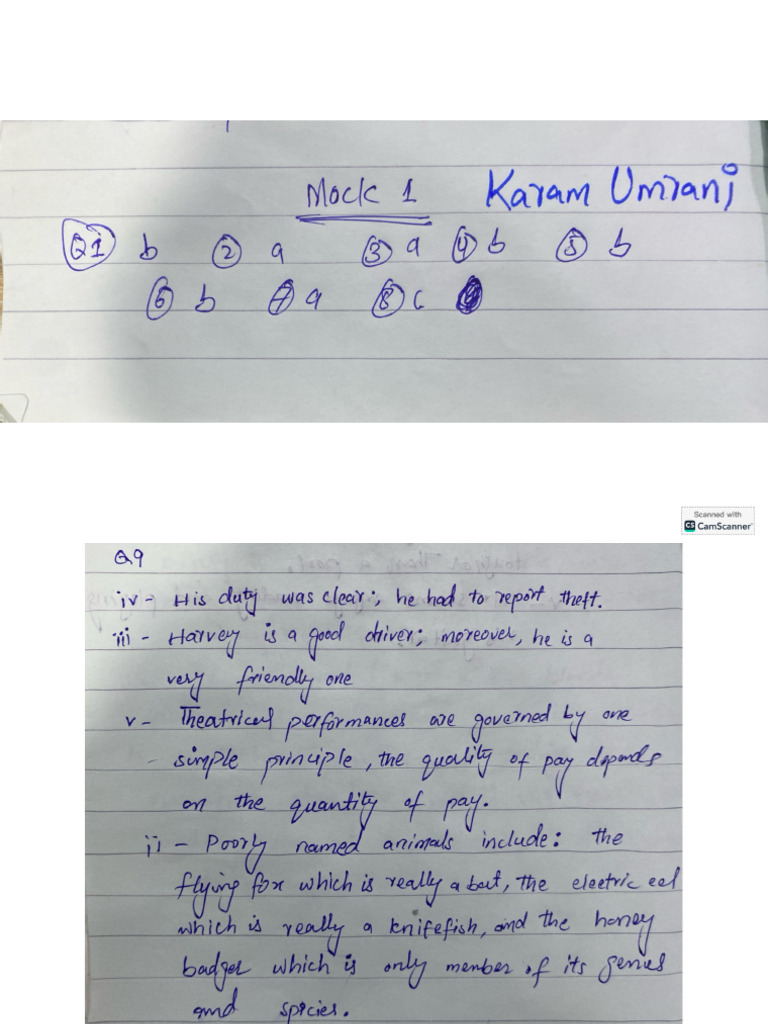 Mock 1 Karam Umrani
Q1 b ② a ③ a ④ b ⑤ b
⑥ b ⑦ a ⑧ c
Scanned with
CS CamScanner
Q9
iv- His duty was clear:, he had to report theft.
iii - Harvey is a good driver; moreover, he is a
very friendly one
v- Theatrical performances are governed by one
- simple principle, the quality of pay depends
on the quantity of pay.
ii - Poorly named animals include: the
flying fox which is really a bat, the electric eel
which is really a knifefish, and the honey
badger which is only member of its genus
and species.